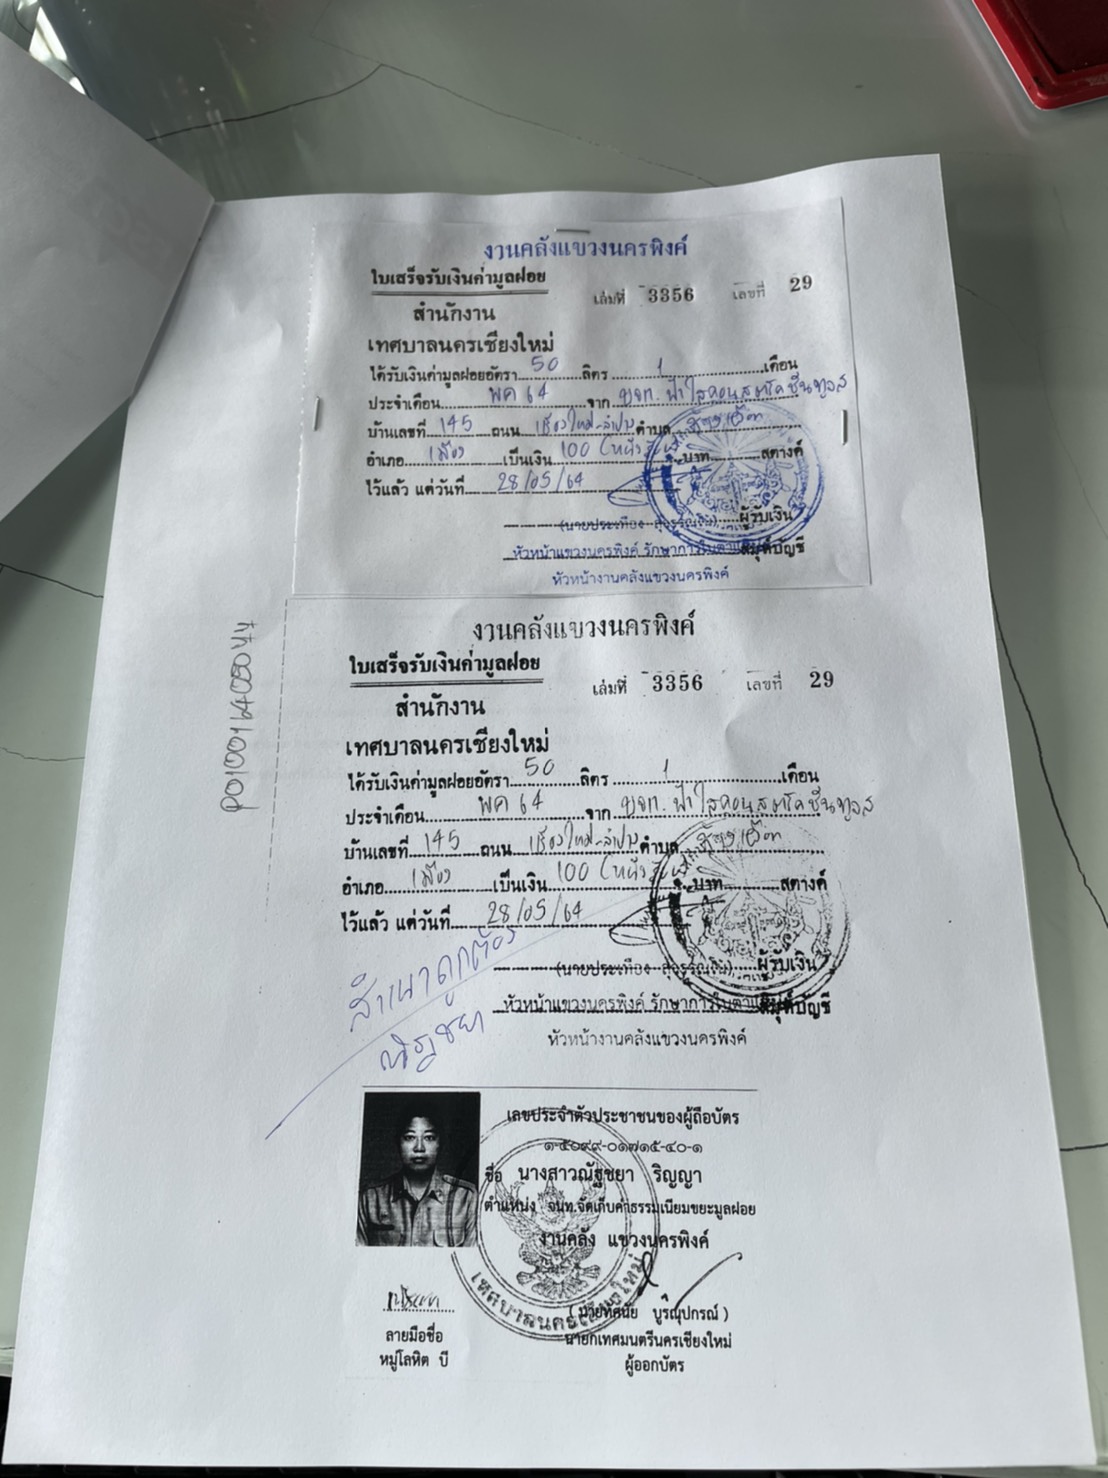 งานคลังแขวงนครพิงค์
ใบเสร็จรับเงินค่ามูลฝอย
เล่มที่ 3356 เลขที่ 29
สำนักงาน
เทศบาลนครเชียงใหม่
ได้รับเงินค่ามูลฝอยอัตรา 50 ลิตร 1 เดือน
ประจำเดือน พค 64 จาก บจก. ฟ้าใสคอนสตรัคชั่น
บ้านเลขที่ 145 ถนน เชียงใหม่-ลำปาง ตำบล
อำเภอ เมือง เป็นเงิน 100 บาท สตางค์
ไว้แล้ว แต่วันที่ 28/05/64
(นายประเทือง) ผู้รับเงิน
หัวหน้าแขวงนครพิงค์ รักษาการในตำแหน่ง สมุห์บัญชี
หัวหน้างานคลังแขวงนครพิงค์
งานคลังแขวงนครพิงค์
ใบเสร็จรับเงินค่ามูลฝอย
เล่มที่ 3356 เลขที่ 29
สำนักงาน
เทศบาลนครเชียงใหม่
ได้รับเงินค่ามูลฝอยอัตรา 50 ลิตร 1 เดือน
ประจำเดือน พค 64 จาก บจก. ฟ้าใสคอนสตรัคชั่น
บ้านเลขที่ 145 ถนน เชียงใหม่-ลำปาง ตำบล
อำเภอ เมือง เป็นเงิน 100 บาท สตางค์
ไว้แล้ว แต่วันที่ 28/05/64
(นายประเทือง) ผู้รับเงิน
หัวหน้าแขวงนครพิงค์ รักษาการในตำแหน่ง สมุห์บัญชี
หัวหน้างานคลังแขวงนครพิงค์
สำเนาถูกต้อง
ณัฐชยา
เลขประจำตัวประชาชนของผู้ถือบัตร
๑-๕๐๙๙-๐๑๗๑๕-๔๐-๑
ชื่อ นางสาวณัฐชยา ริญญา
ตำแหน่ง จนท.จัดเก็บค่าธรรมเนียมขยะมูลฝอย
งานคลัง แขวงนครพิงค์
เทศบาลนครเชียงใหม่
(นายทัศนัย บูรณุปกรณ์)
ลายมือชื่อ นายกเทศมนตรีนครเชียงใหม่
หมู่โลหิต บี ผู้ออกบัตร